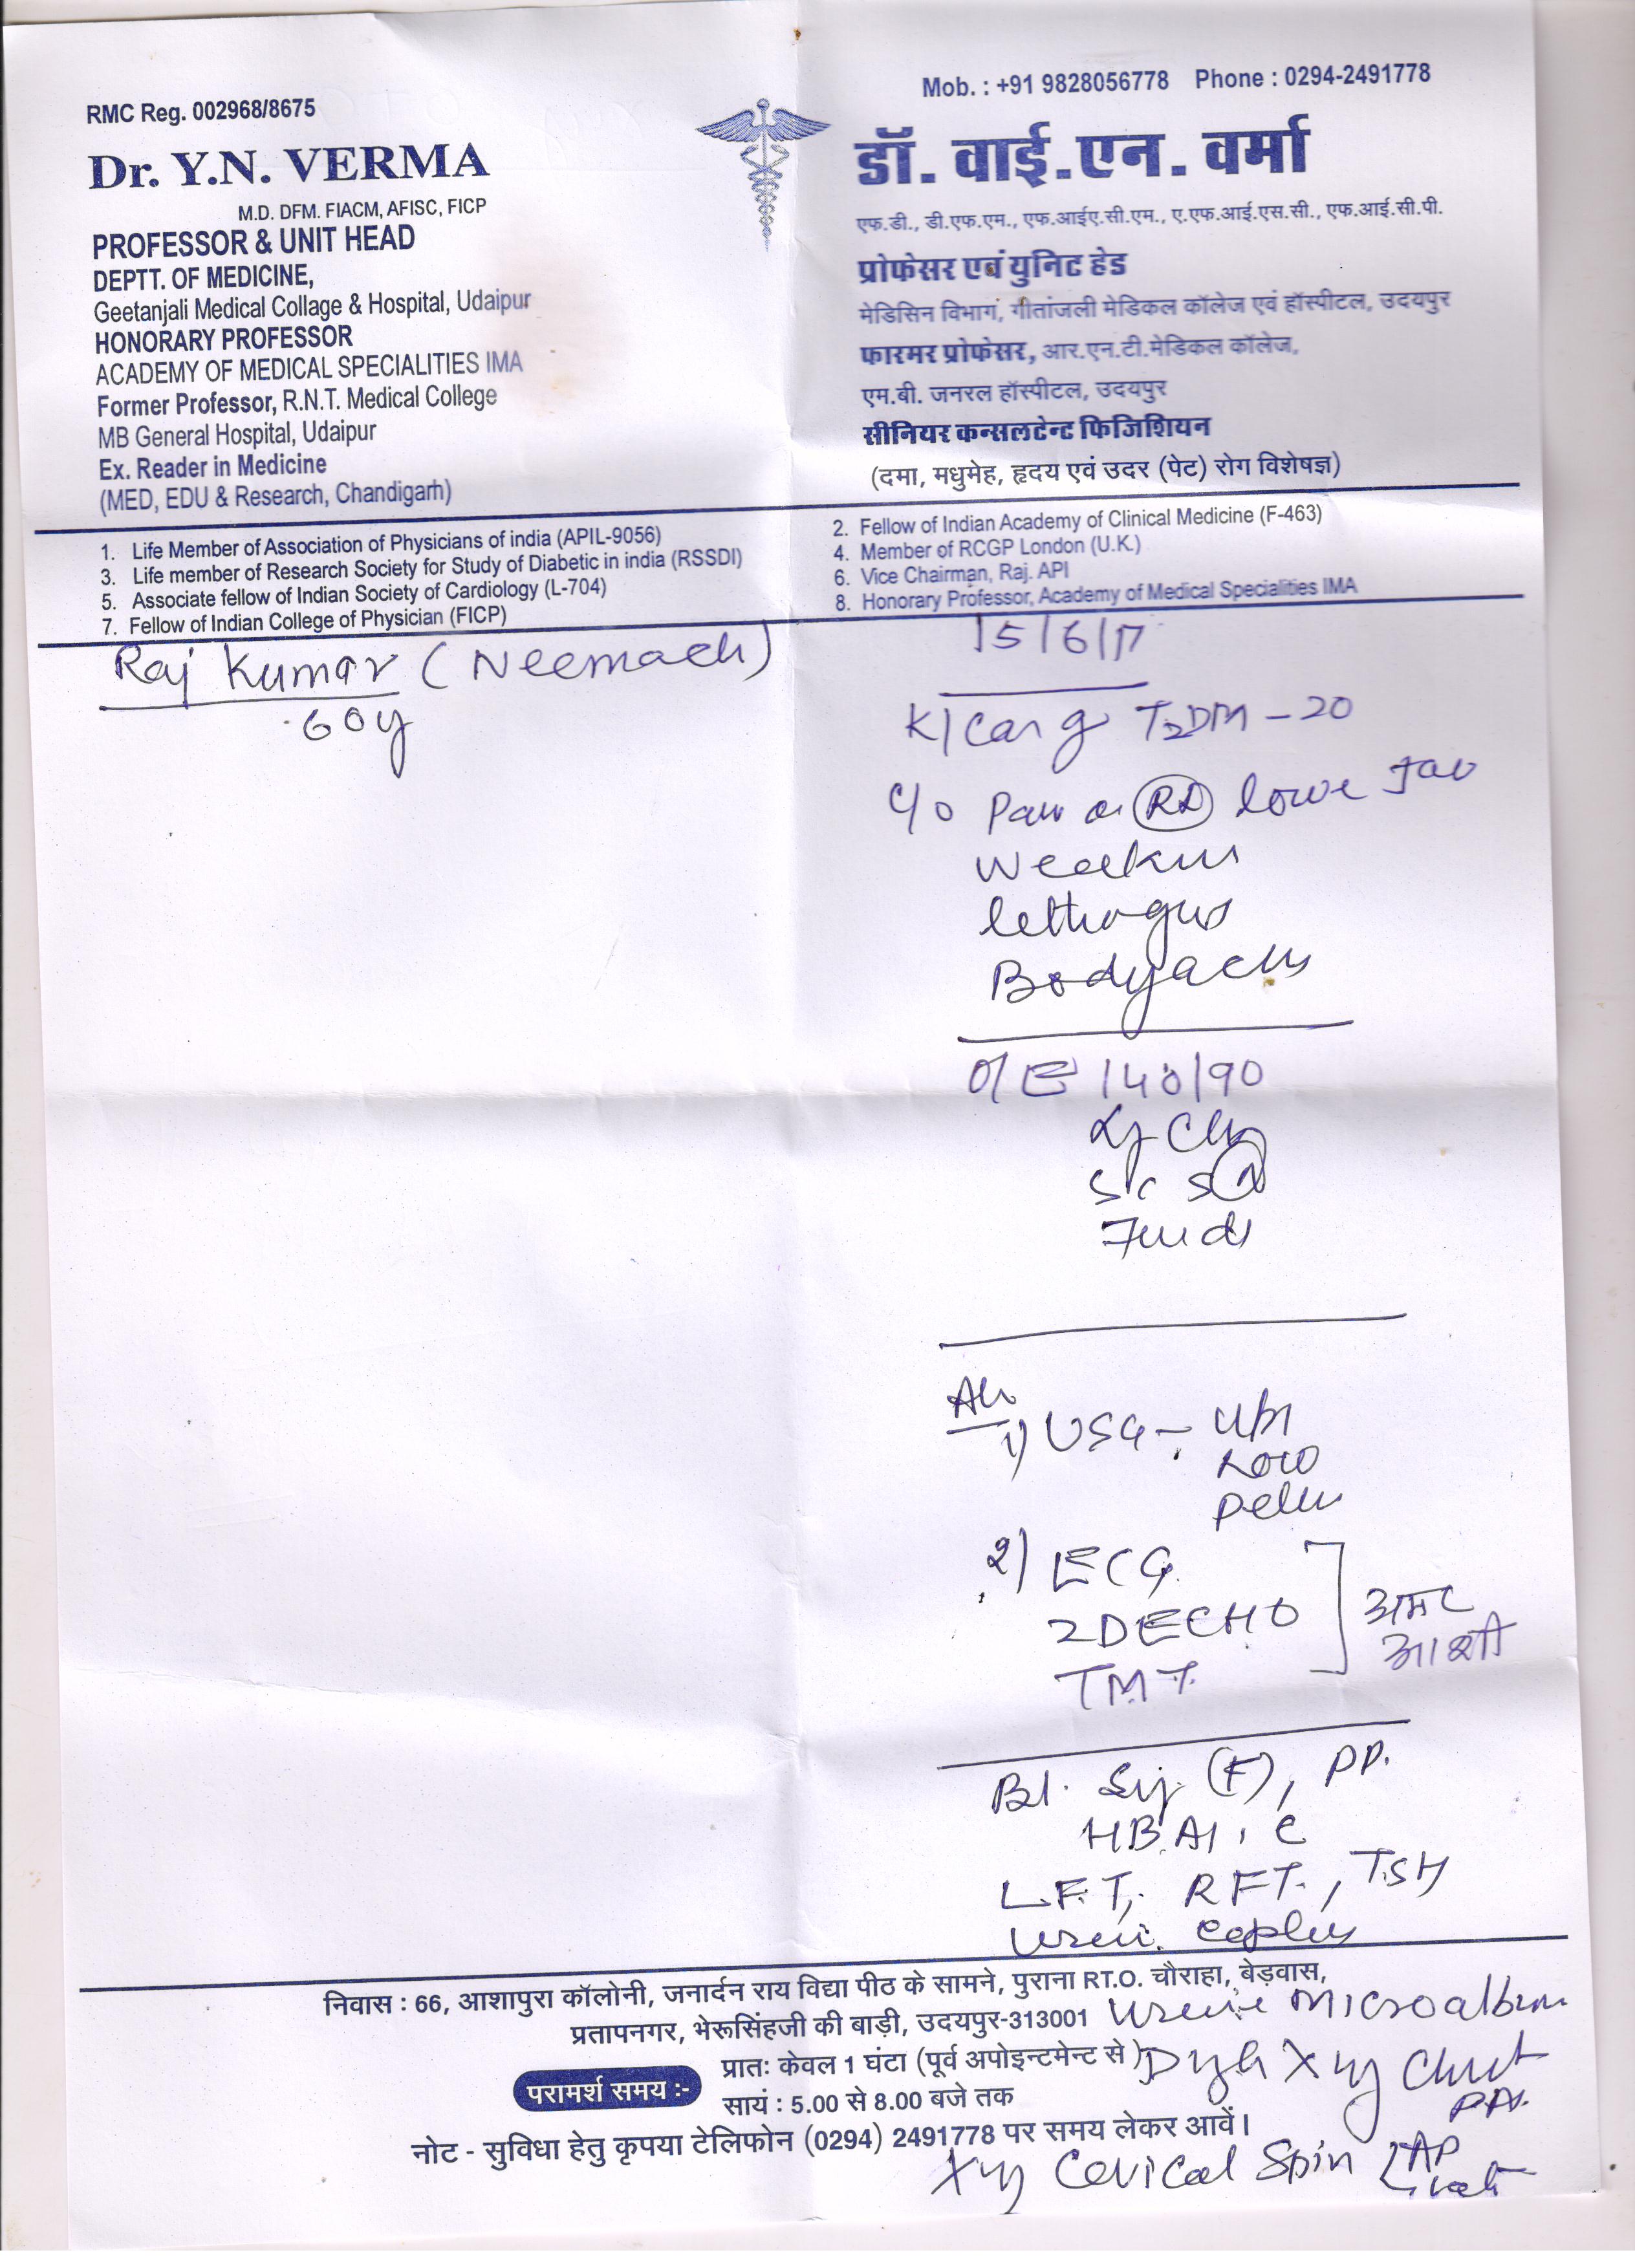 RMC Reg. 002968/8675
Dr. Y.N. VERMA
M.D. DFM. FIACM, AFISC, FICP
PROFESSOR & UNIT HEAD
DEPTT. OF MEDICINE,
Geetanjali Medical Collage & Hospital, Udaipur
HONORARY PROFESSOR
ACADEMY OF MEDICAL SPECIALITIES IMA
Former Professor, R.N.T. Medical College
MB General Hospital, Udaipur
Ex. Reader in Medicine
(MED, EDU & Research, Chandigarh)
Mob. : +91 9828056778 Phone : 0294-2491778
डॉ. वाई.एन. वर्मा
एफ.डी., डी.एफ.एम., एफ.आईए.सी.एम., ए.एफ.आई.एस.सी., एफ.आई.सी.पी.
प्रोफेसर एवं युनिट हेड
मेडिसिन विभागं, गीतांजली मेडिकल कॉलेज एवं हॉस्पीटल, उदयपुर
फारमर प्रोफेसर, आर.एन.टी.मेडिकल कॉलेज,
एम.बी. जनरल हॉस्पीटल, उदयपुर
सीनियर कन्सलटेन्ट फिजिशियन
(दमा, मधुमेह, हृदय एवं उदर (पेट) रोग विशेषज्ञ)
1. Life Member of Association of Physicians of india (APIL-9056)
2. Fellow of Indian Academy of Clinical Medicine (F-463)
3. Life member of Research Society for Study of Diabetic in india (RSSDI)
4. Member of RCGP London (U.K.)
5. Associate fellow of Indian Society of Cardiology (L-704)
6. Vice Chairman, Raj. API
7. Fellow of Indian College of Physician (FICP)
8. Honorary Professor, Academy of Medical Specialities IMA
Raj Kumar (Neemach)
60y
15/6/17
K/Cas T2DM - 20
C/o Pain lower Jaw
Weakness
lethargy
Bodyache
O/E 140/90
1) USG -
2) ECG
2DECHO
TMT
Bl. (F), PP.
HBA1C
L.F.T, RFT., TSH
Urine
निवास : 66, आशापुरा कॉलोनी, जनार्दन राय विद्या पीठ के सामने, पुराना RT.O. चौराहा, बेड़वास,
प्रतापनगर, भेरूसिंहजी की बाड़ी, उदयपुर-313001
Urine Microalbum
परामर्श समय :-
प्रातः केवल 1 घंटा (पूर्व अपोइन्टमेन्ट से)
सायं : 5.00 से 8.00 बजे तक
Xray Chest
PA.
नोट - सुविधा हेतु कृपया टेलिफोन (0294) 2491778 पर समय लेकर आवें।
Xray Cervical Spin AP